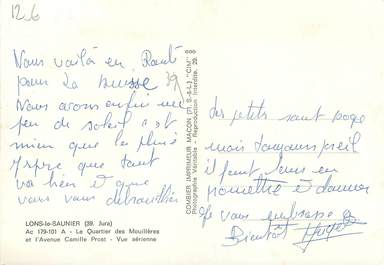 12.6
Nous voilà en route
pour la Suisse 39
Nous avons enfin un
peu de soleil c est
mieux que la pluie
J'espère que tout
va bien et que
vous vous débrouillez
LONS-le-SAUNIER (39. Jura)
Ac 179-101 A - Le Quartier des Mouillères
et l'Avenue Camille Prost - Vue aérienne
COMBIER IMPRIMEUR MACON (71. S.-&-L.) "CIM"
Photographie Véritable - Reproduction interdite.
les petits sont sages
mais toujours pareil
il faut leur en
promettre et donner
Je vous embrasse
Bientôt